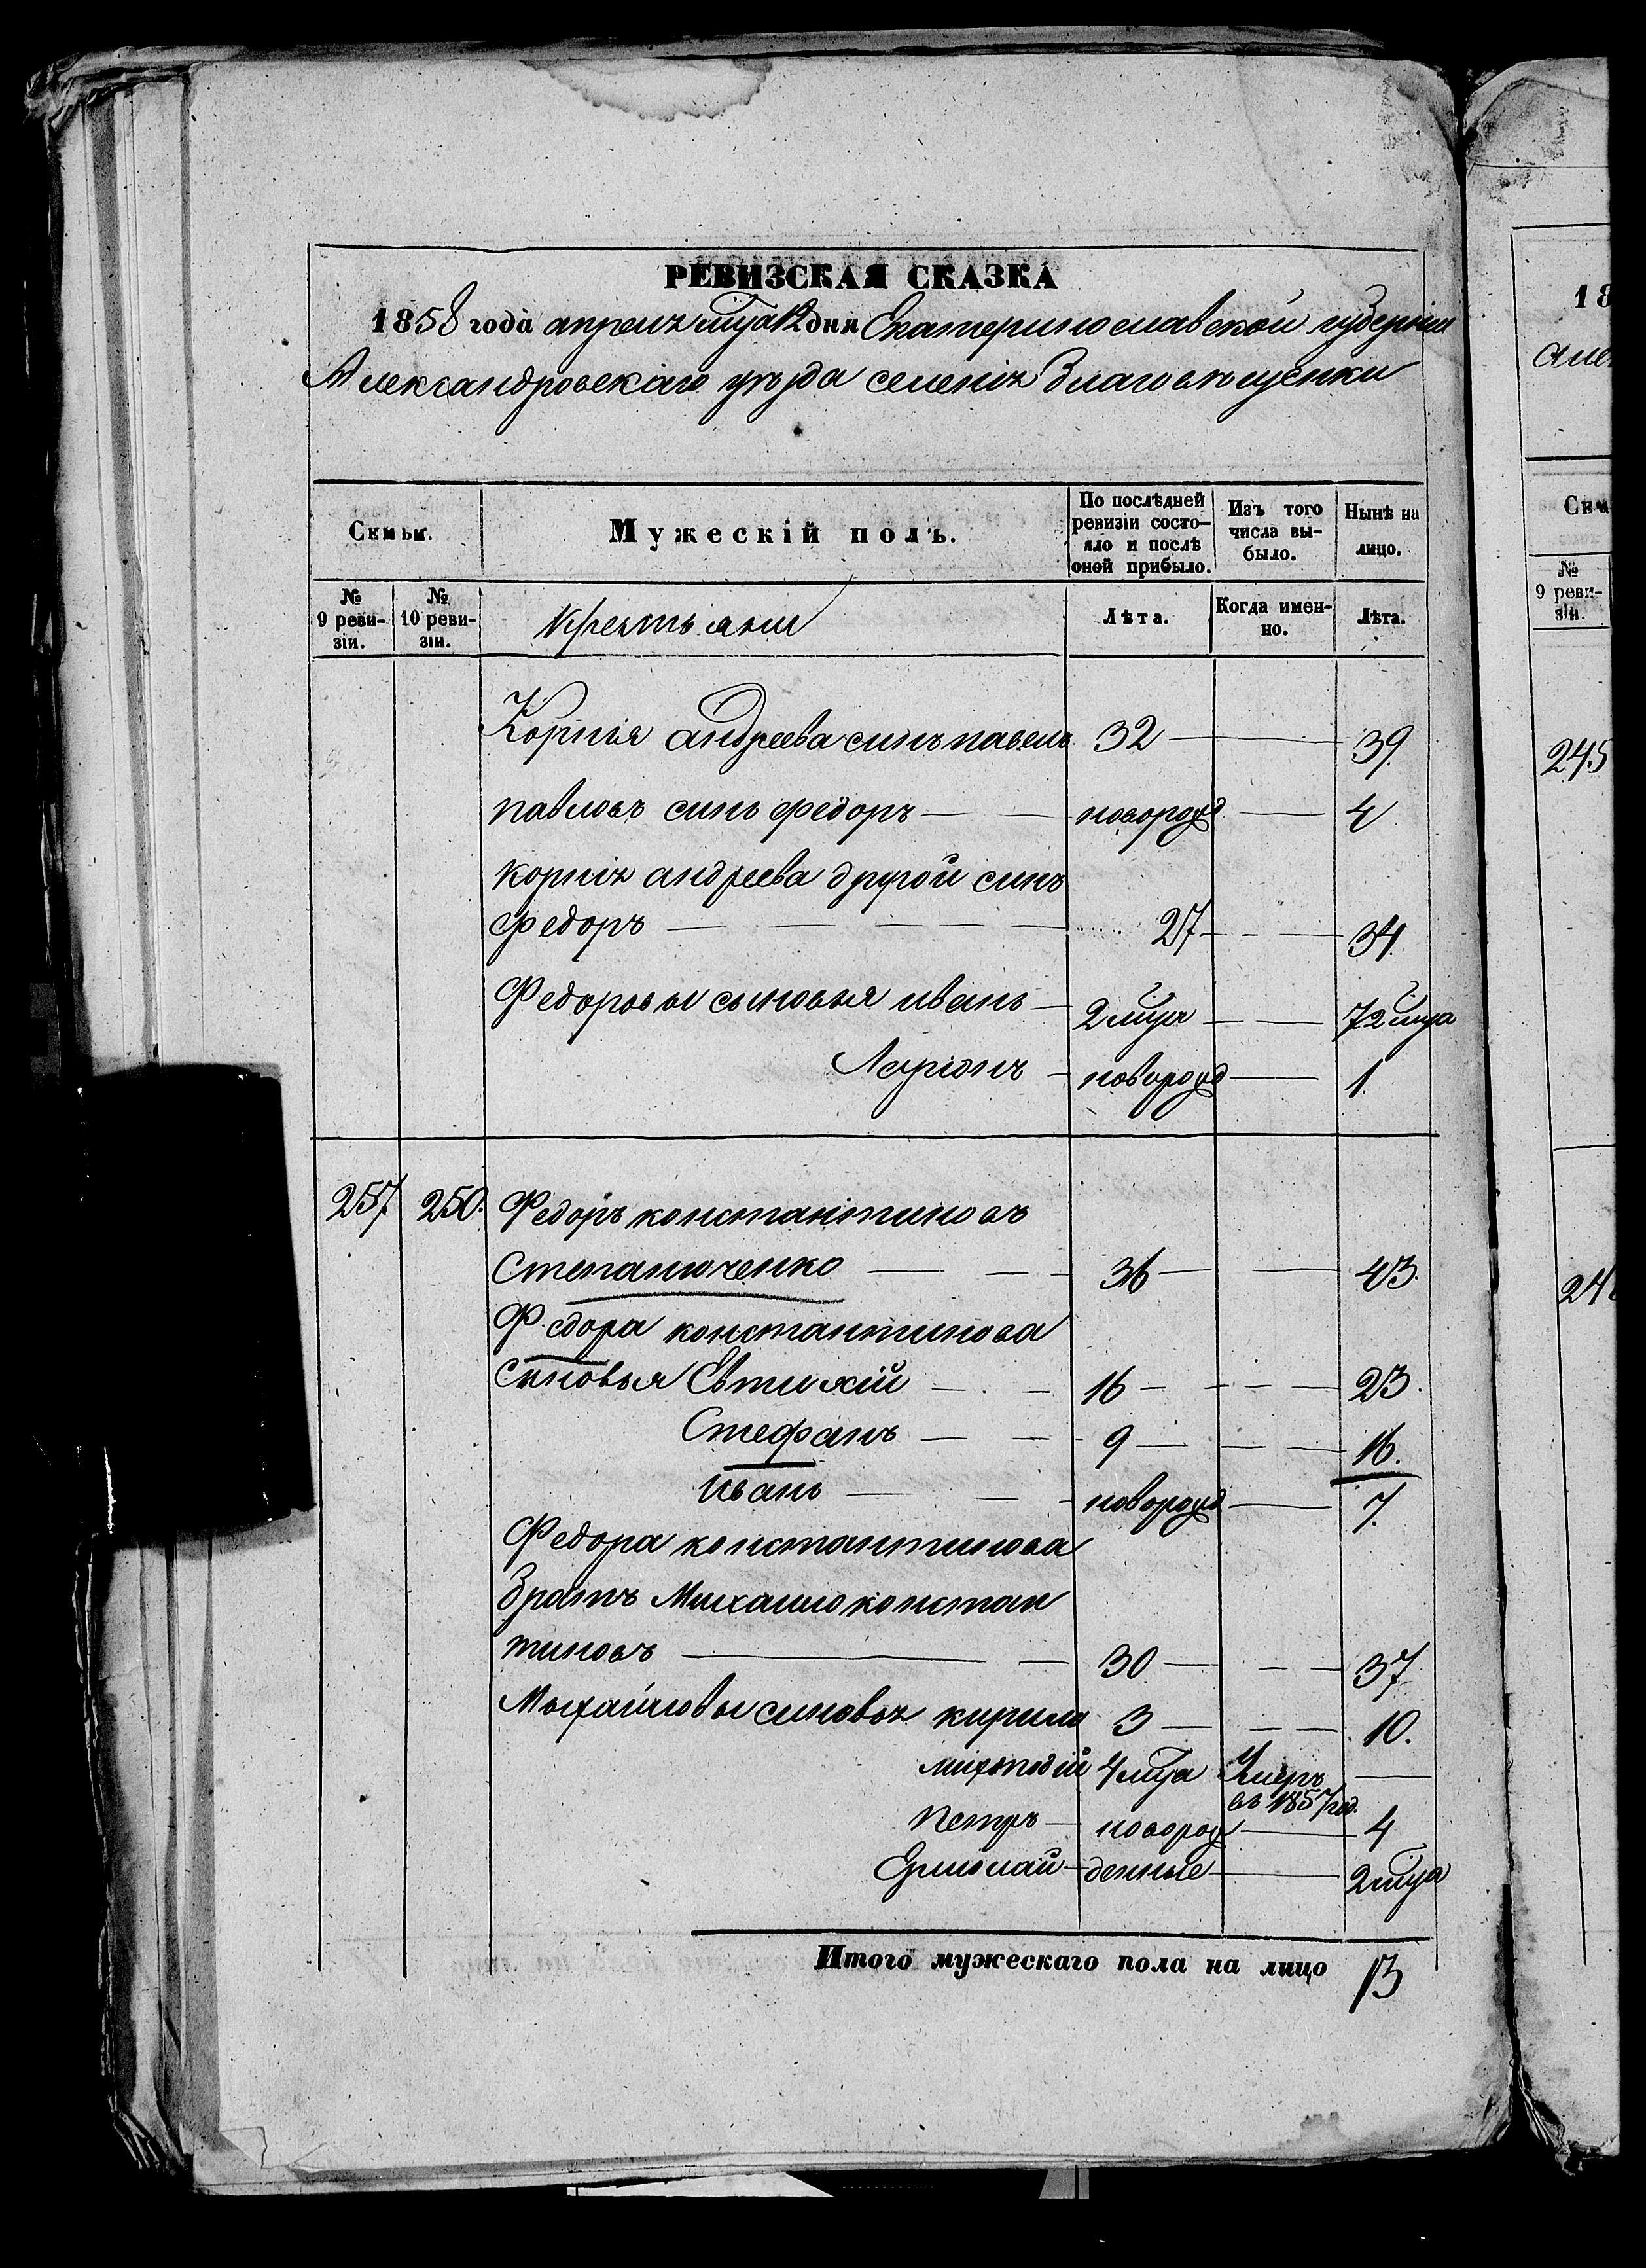 РЕВИЗСКАЯ СКАЗКА
1858 года апреля мца 12 дня Екатеринославской губернии
Александровскаго уезда селенія Благовещенки
Семьи.
Мужескій полъ.
По послѣдней ревизіи состо-
яло и послѣ
оной прибыло.
Изъ того
числа вы-
было.
Нынѣ на
лицо.
№
9 реви-
зіи.
№
10 реви-
зіи.
крестьяни
Лѣта.
Когда имен-
но.
Лѣта.
Корнія андреева синъ павелъ 32 39
павловъ синъ федоръ новорожд 4
корнія андреева другой синъ
федоръ 27 34
Федоровы сыновья иванъ 2 мца 7 2 мца
Ларіонъ новорожд 1
257 250. Федоръ константиновъ
Степанюченко 36 43.
Федора константинова
синовья Евтихій 16 23.
Стефанъ 9 16.
иванъ новорожд 7.
Федора константинова
братъ Михаило констан
тиновъ 30 37
Михайловы синовья кирило 3 10.
мифодій 4 мца Умеръ
въ 1857 год.
петръ новорож 4
Ермолай денные 2 мца
Итого мужескаго пола на лицо 13
18
Але
Сем
№
9 реви-
зіи.
245
24